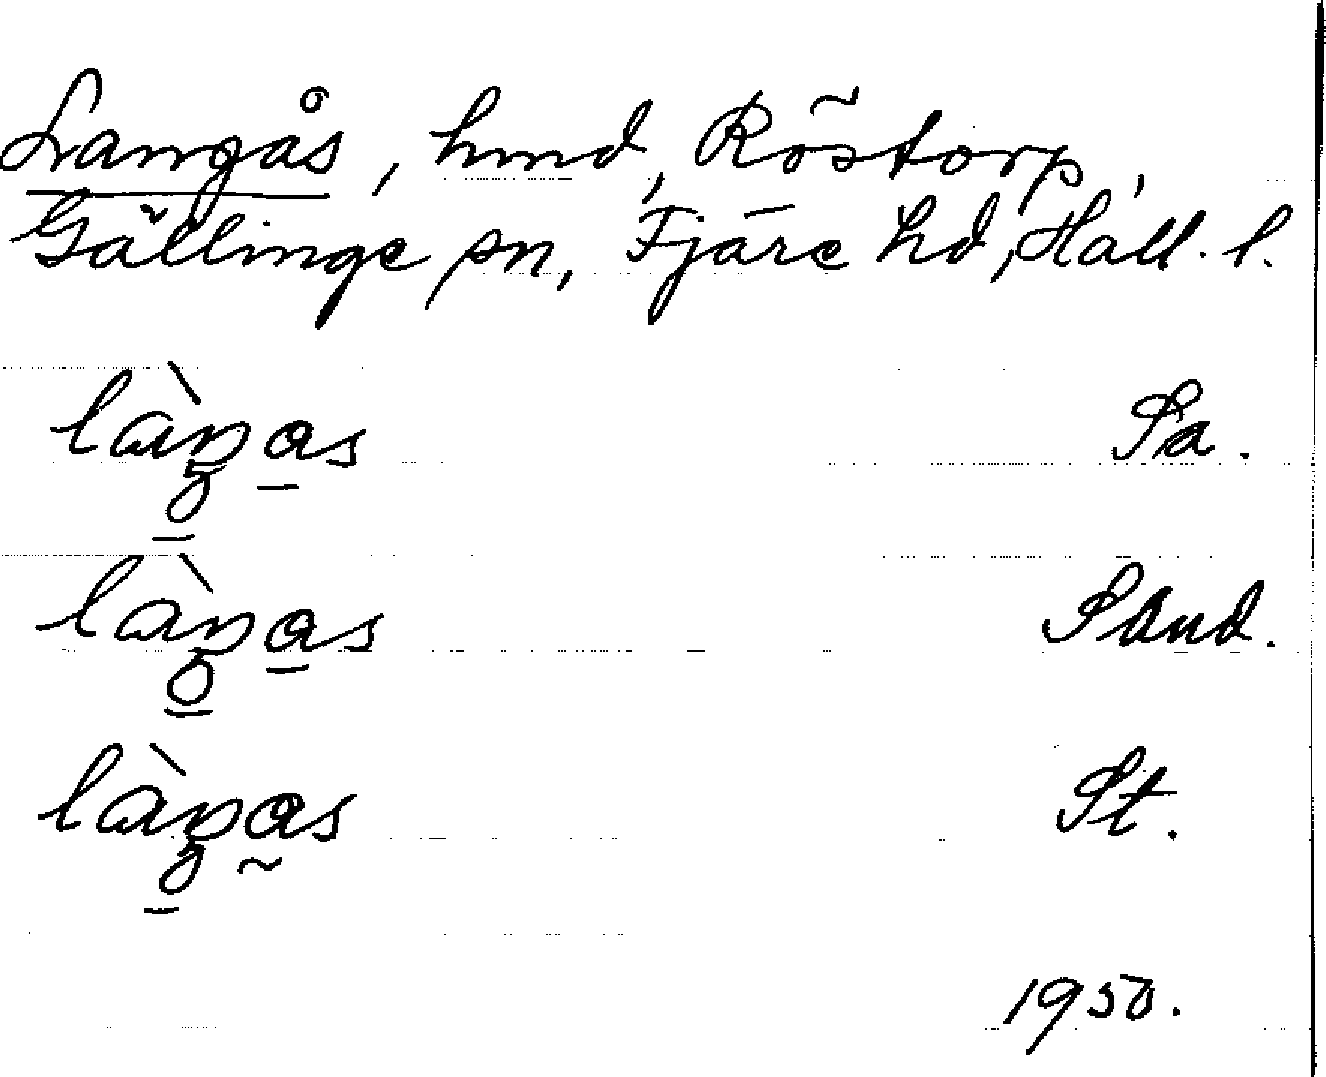 Langås, hmd, Röstorp,
Gällinge sn, Fjäre hd, Hall. l.
làŋas Sa.
làŋas Sand.
làŋas St.
1950.